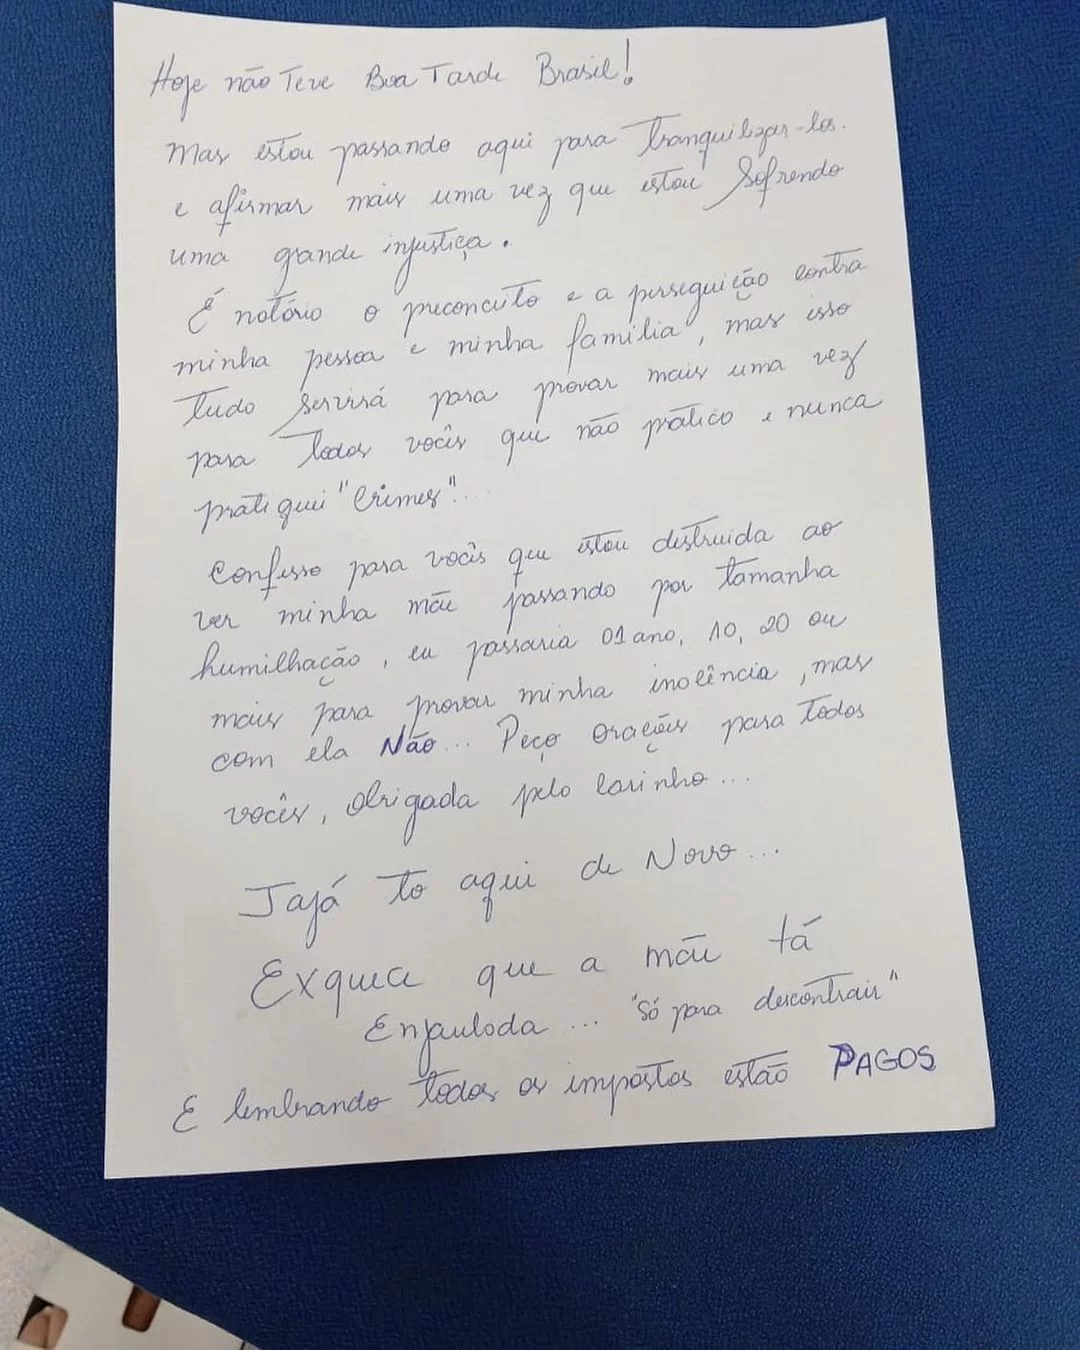 Hoje não Teve Boa Tarde Brasil!
Mas estou passando aqui para Tranquilizar-los.
e afirmar mais uma vez que estou Sofrendo
uma grande injustiça.
É notório o preconceito e a perseguição contra
minha pessoa e minha família, mas isso
Tudo Servirá para provar mais uma vez
para Todos vocês que não pratico e nunca
pratiquei "Crimes"...
Confesso para vocês que estou destruida ao
ver minha mãe passando por tamanha
humilhação, eu passaria 01 ano, 10, 20 ou
mais para provar minha inocência, mas
com ela Não... Peço orações para todos
vocês, obrigada pelo carinho...
Jajá to aqui de Novo...
Exquece que a mãe tá
Enjaulada... "Só para descontrair"
E lembrando todos os impostos estão PAGOS